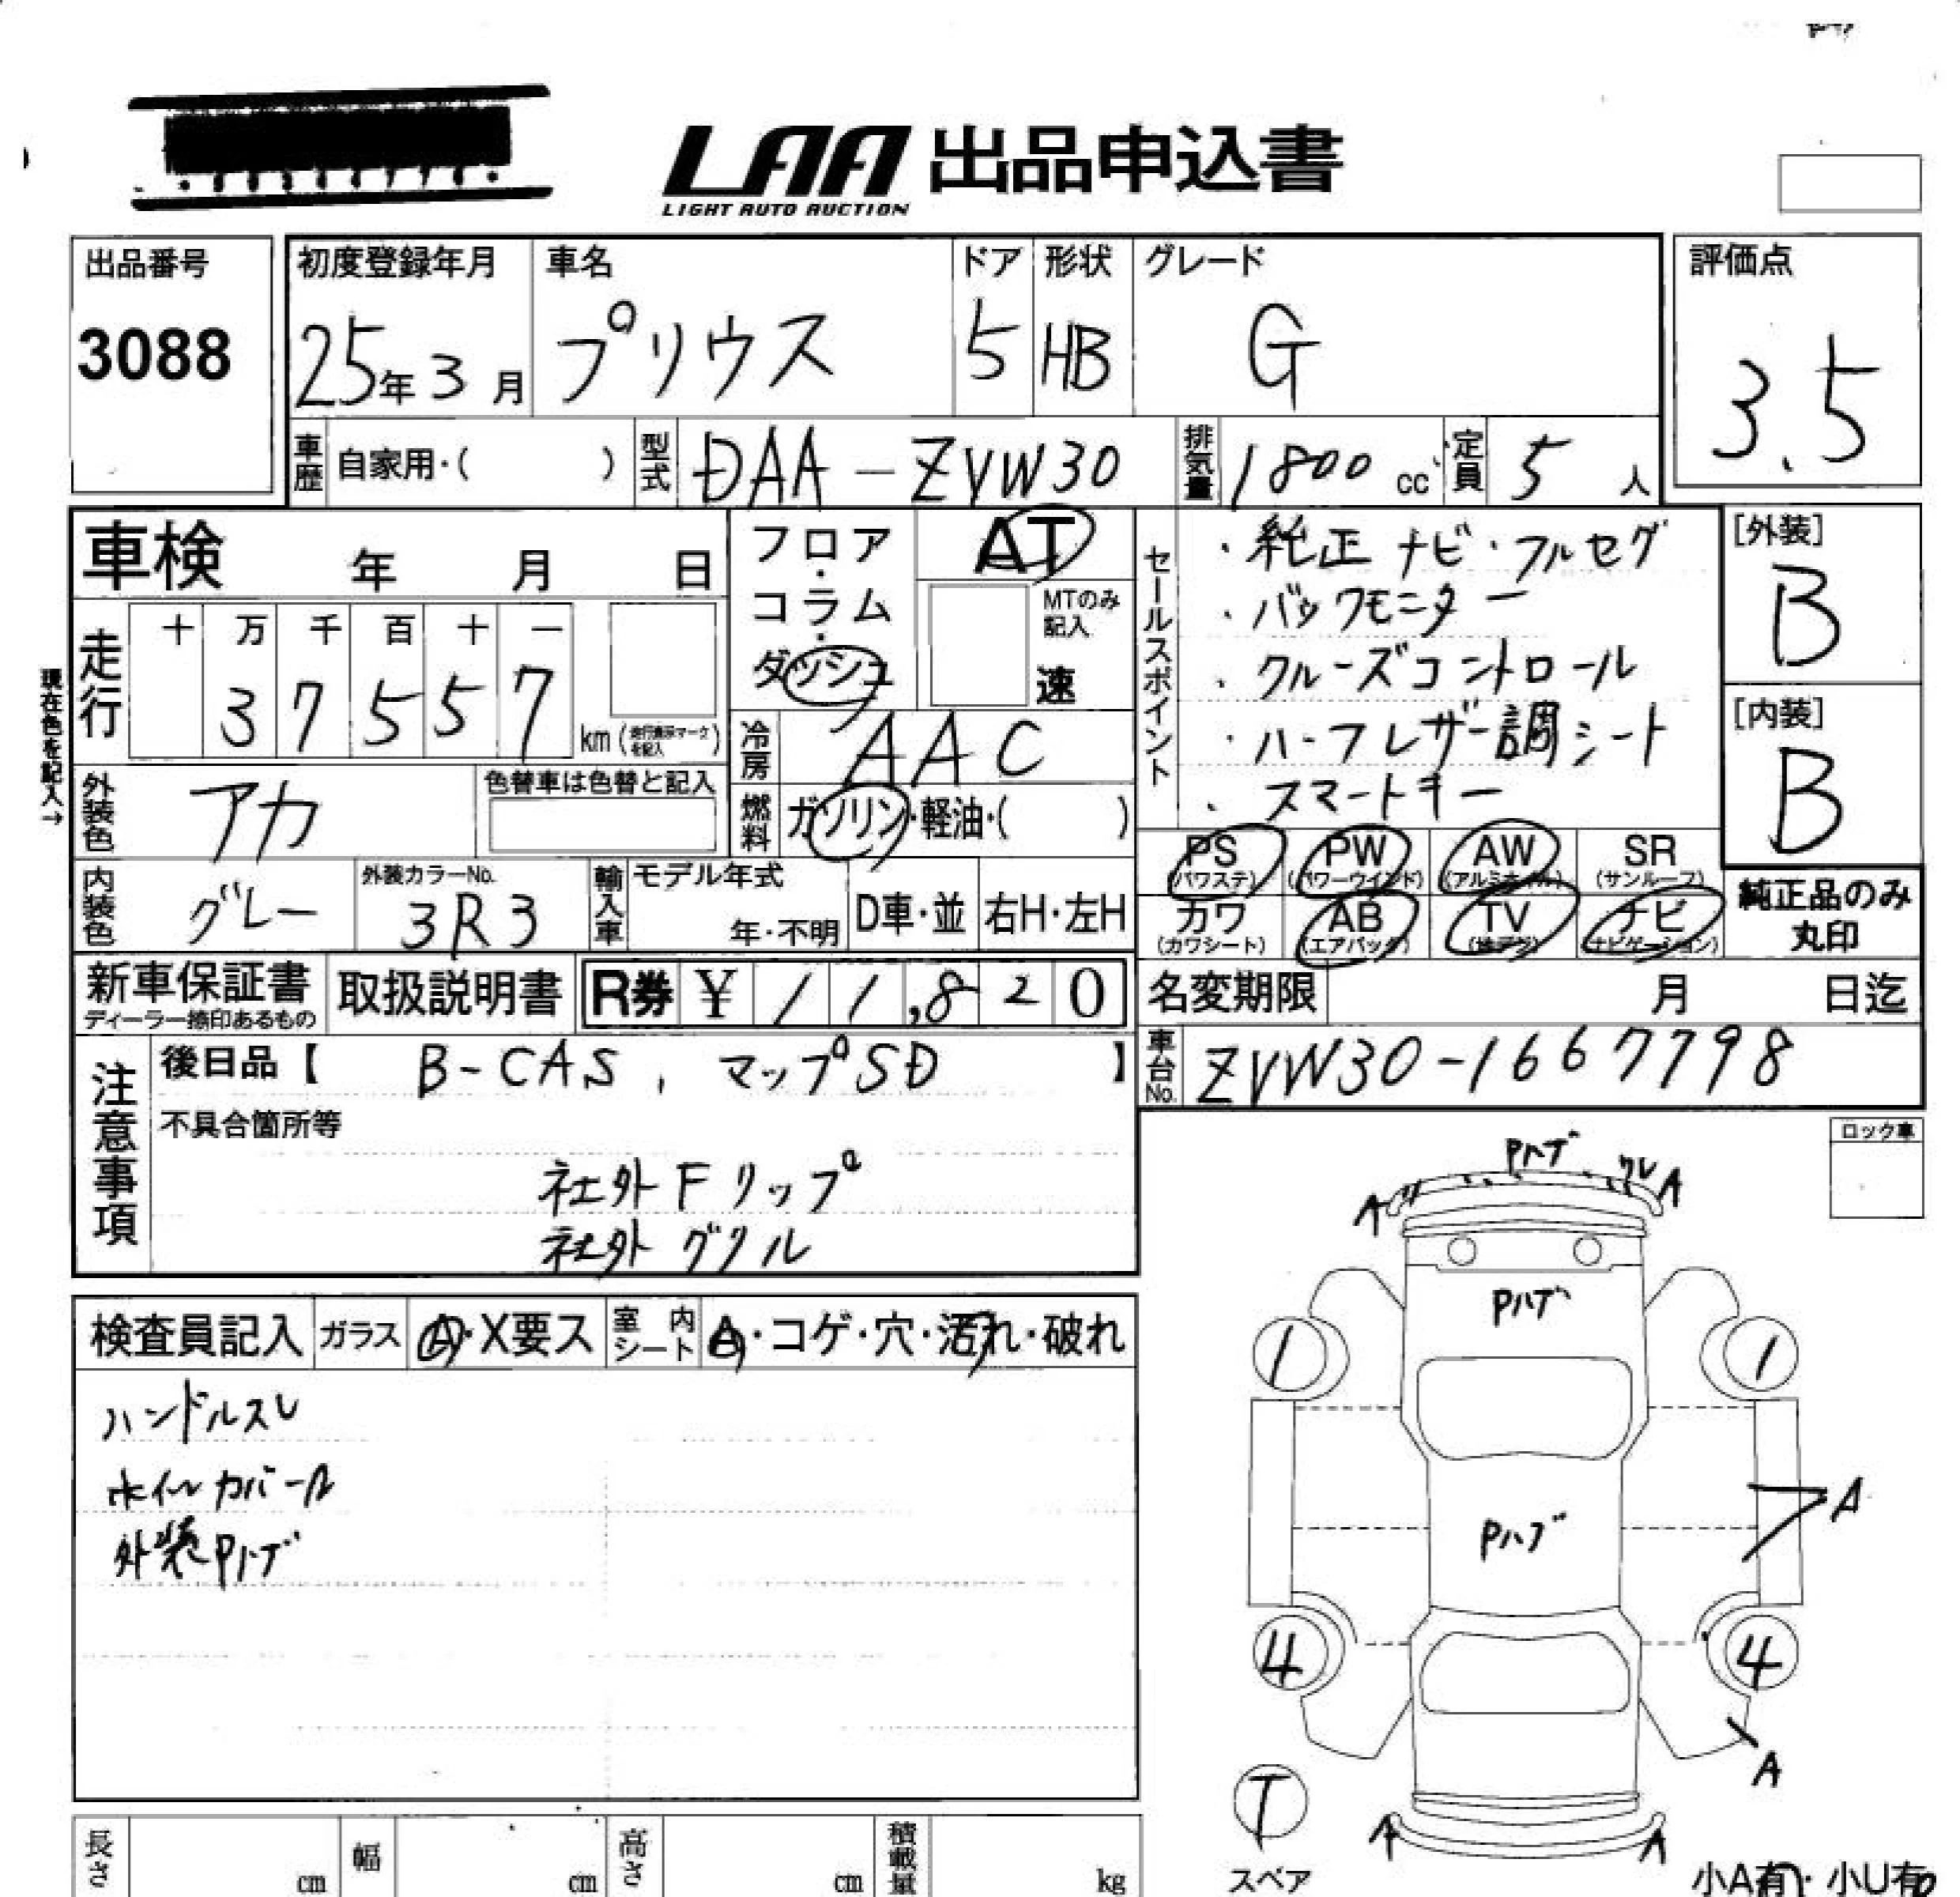 LAA 出品申込書
LIGHT AUTO AUCTION
出品番号
3088
初度登録年月
25年 3月
車名
プリウス
ドア
5
形状
HB
グレード
G
評価点
3.5
車歴 自家用・( )
型式 DAA-ZVW30
排気量 1800 cc
定員 5 人
車検 年 月 日
フロア・コラム・ダッシュ
AT
MTのみ記入
速
セールスポイント
・純正ナビ・フルセグ
・バックモニター
・クルーズコントロール
・ハーフレザー調シート
・スマートキー
[外装]
B
[内装]
B
現在色を記入→
走行
十 万 千 百 十 一
3 7 5 5 7
km (走行表示マークを記入)
冷房 AAC
外装色 アカ
色替車は色替と記入
燃料 ガソリン・軽油・( )
PS (パワステ)
PW (パワーウインド)
AW (アルミホイル)
SR (サンルーフ)
内装色 グレー
外装カラーNo.
3R3
輸入車
モデル年式
年・不明
D車・並
右H・左H
カワ (カワシート)
AB (エアバッグ)
TV (地デジ)
ナビ (ナビゲーション)
純正品のみ丸印
新車保証書
ディーラー捺印あるもの
取扱説明書
R券 ¥ 11,820
名変期限 月 日迄
車台No. ZVW30-1667798
注意事項
後日品【 B-CAS , マップSD 】
不具合箇所等
社外Fリップ
社外グリル
ロック車
Pハゲ
ワレ
A
A
Pハゲ
1
1
Pハゲ
A
4
4
A
T
スペア
A
A
検査員記入
ガラス Ⓐ・X要ス
室内シート A・コゲ・穴・汚れ・破れ
ハンドルスレ
外装Pハゲ
長さ cm
幅 cm
高さ cm
積載量 kg
小A有・小U有